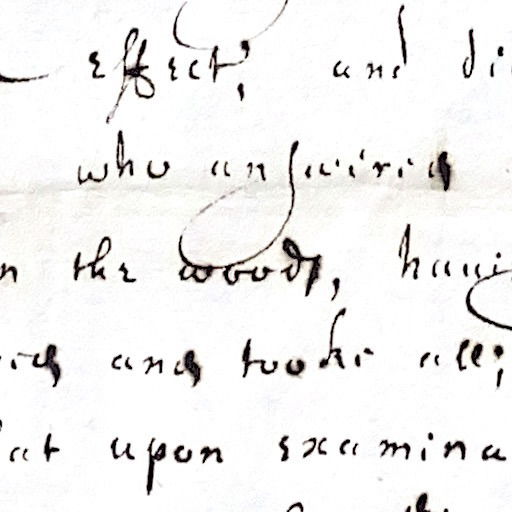 effect; and di
who answered
n the woods, haui
ied and tooke all;
at upon examina